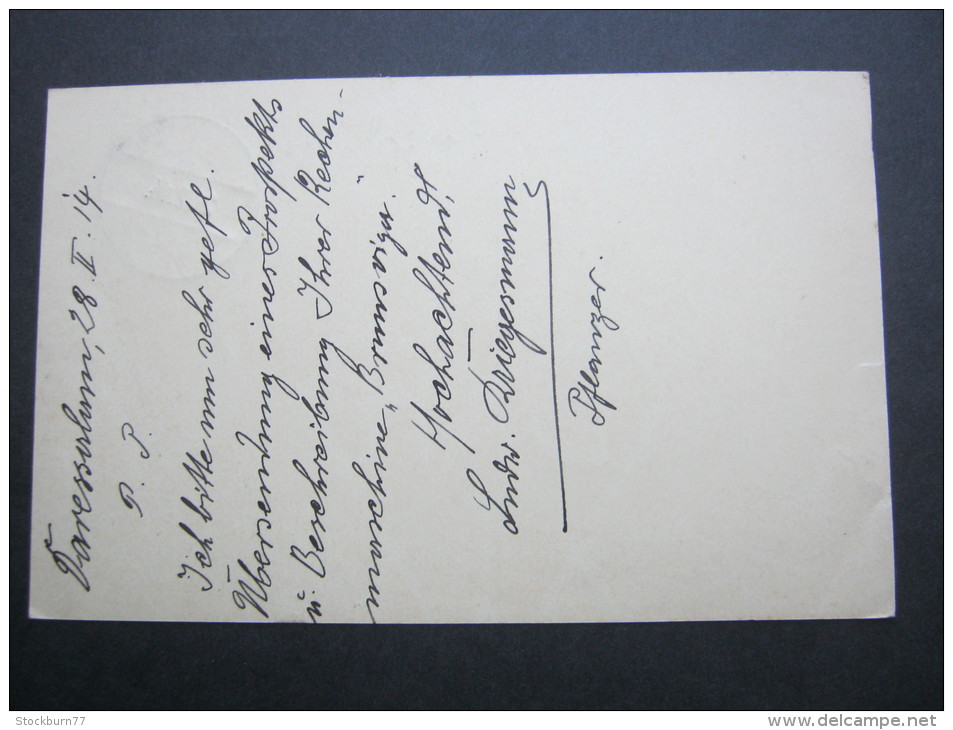 Daressalam, 28. II. 14.
P. P.
Ich bitte um sehr gefl.
Übersendung eines Prospekts
u. Beschreibung Ihrer Rechen-
maschine „Brunsviga".
Hochachtend!
Ludw. Kriegesmann
Pflanzer.
Stockburn77
www.delcampe.net